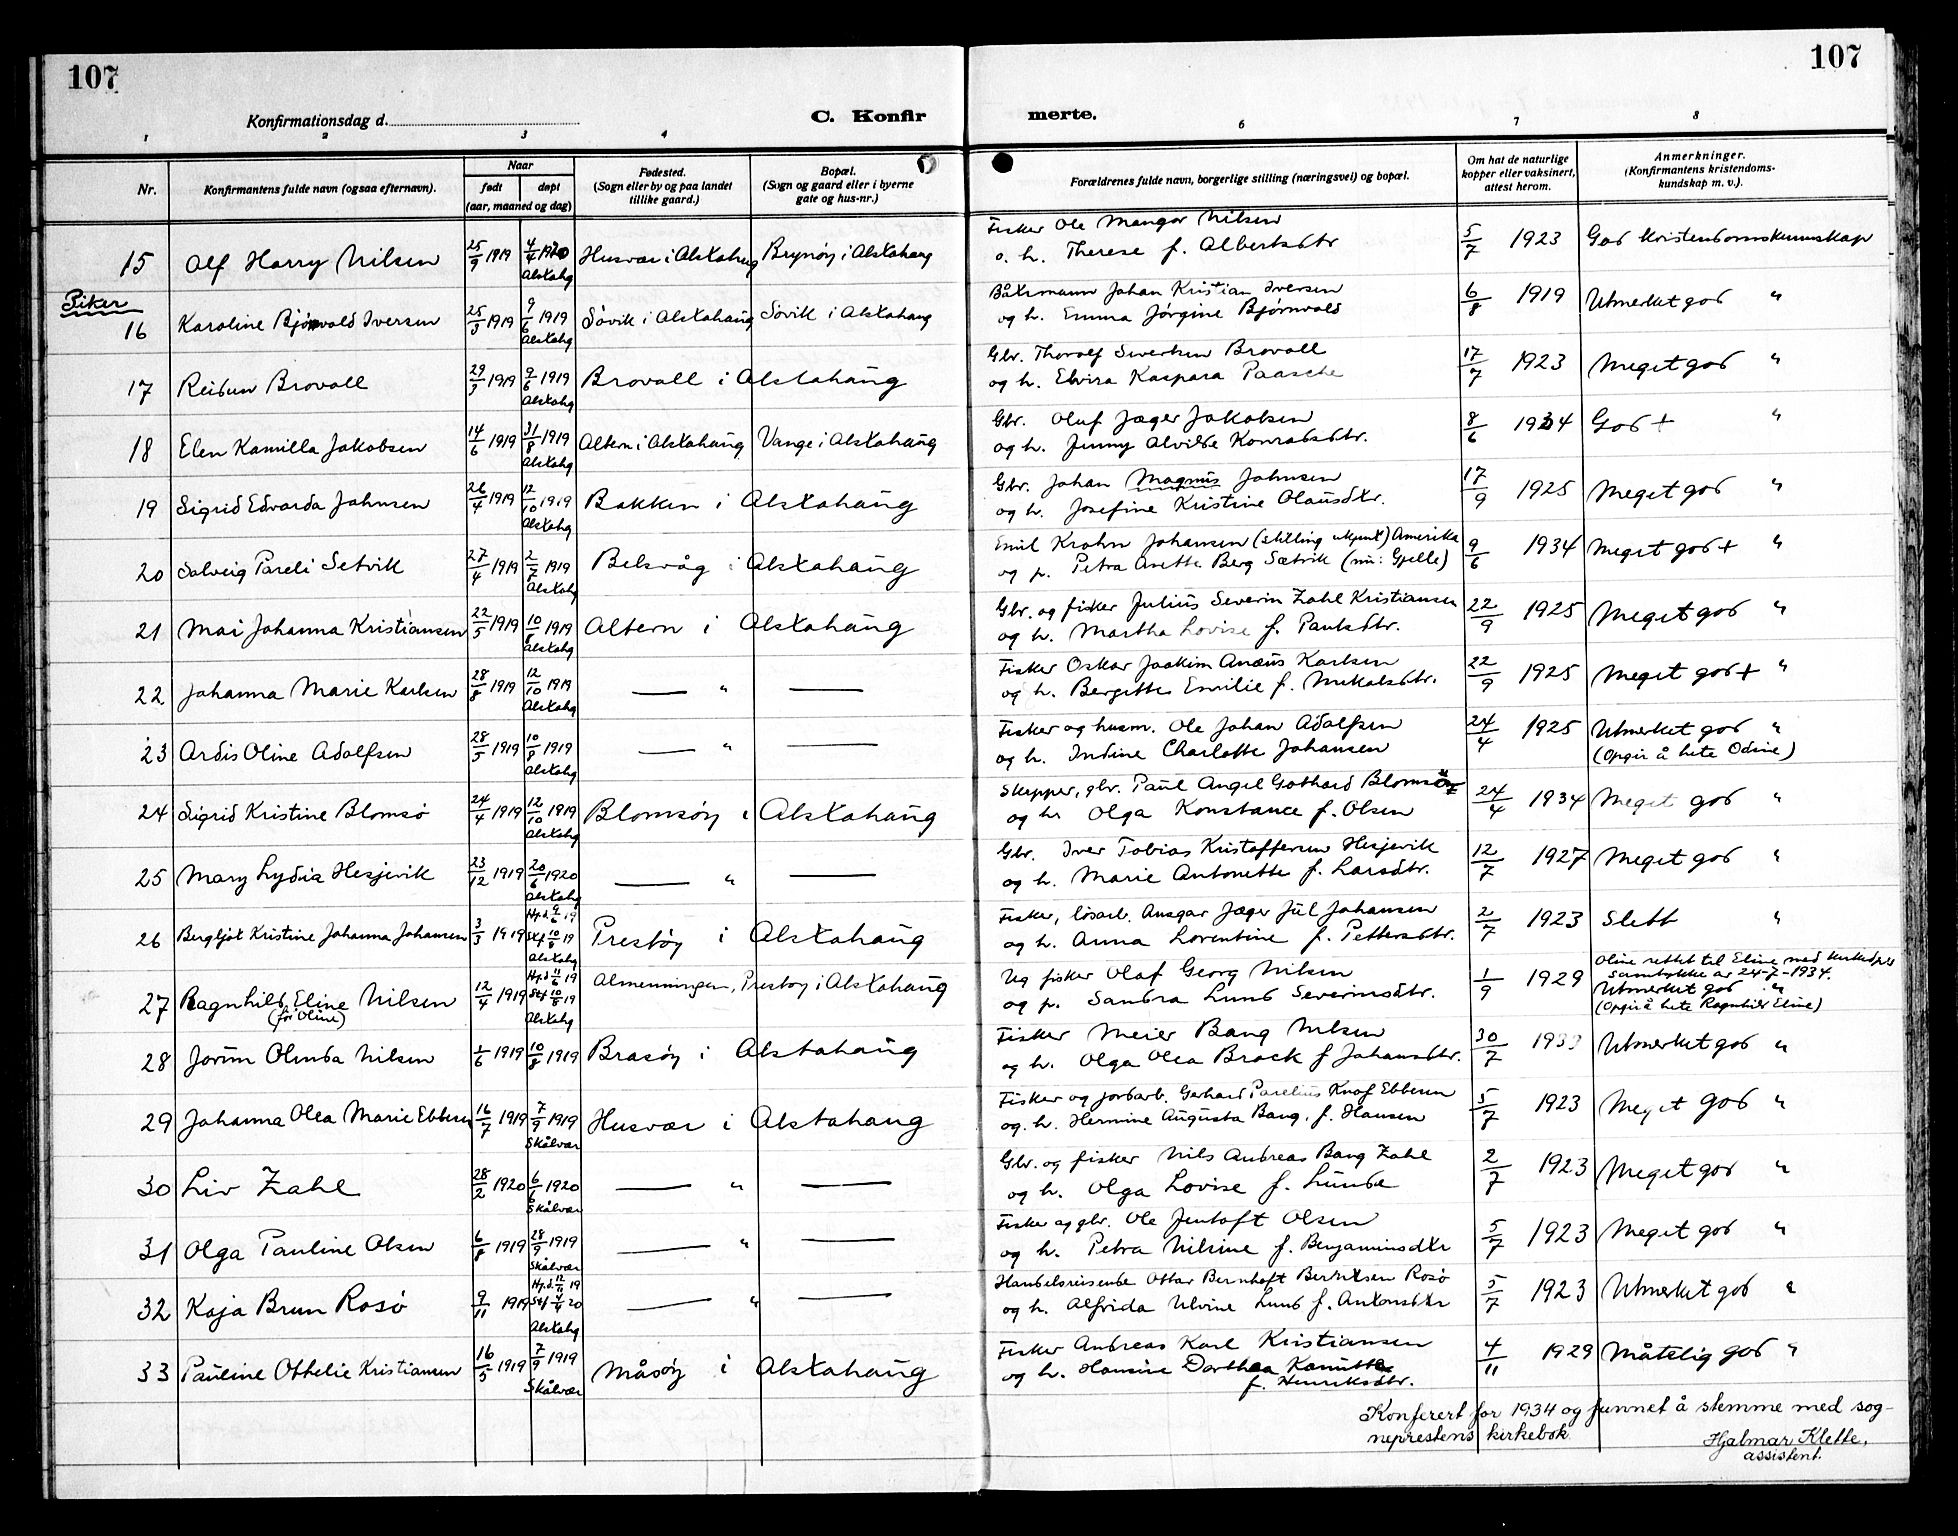 107
107
Konfirmationsdag d.
C. Konfir
merte.
1 2 3 4 6 7 8
Nr.
Konfirmantens fulde navn (ogsaa efternavn).
Naar
født
døpt
(aar, maaned og dag)
Fødested.
(Sogn eller by og paa landet
tillike gaard.)
Bopæl.
(Sogn og gaard eller i byerne
gate og hus-nr.)
Forældrenes fulde navn, borgerlige stilling (næringsvei) og bopæl.
Om hat de naturlige
kopper eller vaksinert,
attest herom.
Anmerkninger.
(Konfirmantens kristendoms-
kundskap m. v.).
15 Alf Harry Nilsen 25/9 1919 4/4 1920 Alstahg Husvær i Alstahaug Brynøy i Alstahaug Fisker Ole Mangor Nilsen 5/7 1923 God kristendomskunnskap
o. h. Therese f. Albertsdtr
Piker
16 Karoline Bjørnvold Iversen 25/3 1919 9/6 1919 Alstahg Søvik i Alstahaug Søvik i Alstahaug Båtsmann Johan Kristian Iversen 6/8 1919 Utmerket god "
og h. Emma Jørgine Bjørnvold
17 Reidun Brovoll 29/3 1919 9/6 1919 Alstahg Brovoll i Alstahaug Gbr. Thoralf Sivertsen Brovoll 17/7 1923 Meget god "
og h. Elvira Kaspara Paasche
18 Elen Kamilla Jakobsen 14/6 1919 31/8 1919 Alstahg Altern i Alstahaug Vange i Alstahaug Gbr. Oluf Jæger Jakobsen 8/6 1934 God + "
og h. Jenny Alvilde Konradsdtr.
19 Sigrid Edvarda Johnsen 26/4 1919 12/10 1919 Alstahg Bakken i Alstahaug Gbr. Johan Magnus Johnsen 17/9 1925 Meget god "
og h. Josefine Kristine Olausdtr.
20 Solveig Pareli Setvik 27/4 1919 2/7 1919 Alstahg Belsvåg i Alstahaug Emil Krohn Johansen (stilling ukjent) Amerika 9/6 1934 Meget god + "
og p. Petra Anette Berg Sætvik (nu: Gjelle)
21 Mai Johanna Kristiansen 22/5 1919 10/8 1919 Alstahg Altern i Alstahaug Gbr. og fisker Julius Severin Zahl Kristiansen 22/9 1925 Meget god "
og h. Martha Lovise f. Paulsdtr.
22 Johanna Marie Karlsen 28/8 1919 12/10 1919 Alstahg — " — Fisker Oskar Joakim Anæus Karlsen 22/9 1925 Meget god + "
og h. Bergitte Emilie f. Mikalsdtr.
23 Ardis Oline Adolfsen 28/5 1919 10/8 1919 Alstahg — " — Fisker og husm. Ole Johan Adolfsen 24/4 1925 Utmerket god "
og h. Indine Charlotte Johansen (Opgir å hete Odine)
24 Sigrid Kristine Blomsø 24/4 1919 12/10 1919 Alstahg Blomsøy i Alstahaug Skipper, gbr. Paul Angel Gotthard Blomsø 24/4 1934 Meget god "
og h. Olga Konstance f. Olsen
25 Mary Lydia Hesjevik 23/12 1919 20/6 1920 Alstahg — " — Gbr. Iver Tobias Kristoffersen Hesjevik 12/7 1927 Meget god "
og h. Marie Antonette f. Larsdtr.
26 Bergljot Kristine Johanna Johansen 3/3 1919 Hj.d. 9/6 19 Stf 10/8 19 Alstahg Prestøy i Alstahaug Fisker, løsarb. Ansgar Jæger Jul Johansen 2/7 1923 Slett "
og h. Anna Lorentine f. Pettersdtr.
27 Ragnhild Eline Nilsen 12/4 1919 Hj.d. 11/6 19 Stf 10/8 19 Alstahg Almenningen, Prestøy i Alstahaug Ug fisker Olaf Georg Nilsen 1/9 1929 Oline rettet til Eline med kirkedpts
(før Oline) og p. Sandra Lund Severinsdtr. samtykke av 24-7-1934.
Utmerket god "
(Opgir å hete Ragnhild Eline)
28 Jorun Olunda Nilsen 1/6 1919 10/8 1919 Brasøy i Alstahaug Fisker Meier Bang Nilsen 30/7 1933 Utmerket god "
og h. Olga Olea Brock f Johansdtr.
29 Johanna Olea Marie Ebbesen 16/7 1919 7/9 1919 Skålvær Husvær i Alstahaug Fisker og jordarb. Gerhard Parelius Knof Ebbesen 5/7 1923 Meget god "
og. h. Hermine Augusta Bang, f. Hansen
30 Liv Zahl 28/2 1920 6/6 1920 Skålvær — " — Gbr. og fisker Nils Andreas Bang Zahl 2/7 1923 Meget god "
og h. Olga Lovise f. Lunde
31 Olga Pauline Olsen 6/8 1919 28/9 1919 Skålvær — " — Fisker og gbr. Ole Jentoft Olsen 5/7 1923 Meget god "
og h. Petra Nilsine f. Benjaminsdtr
32 Kaja Brun Rosø 9/11 1919 Hj.d. 12/11 19 Stf 4/4 20 Alstahg — " — Handelsreisende Ottar Bernhoft Berntsen Rosø 5/7 1923 Utmerket god "
og h. Alfrida Ulvine Lund f. Antonsdtr
33 Pauline Othelie Kristiansen 16/5 1919 7/9 1919 Skålvær Måsøy i Alstahaug Fisker Andreas Karl Kristiansen 4/11 1929 Måtelig god "
og h. Hansine Dorthea Kamilla
f. Henriksdtr.
Konferert for 1934 og funnet å stemme med sog-
neprestens kirkebok
Hjalmar Klette,
assistent.